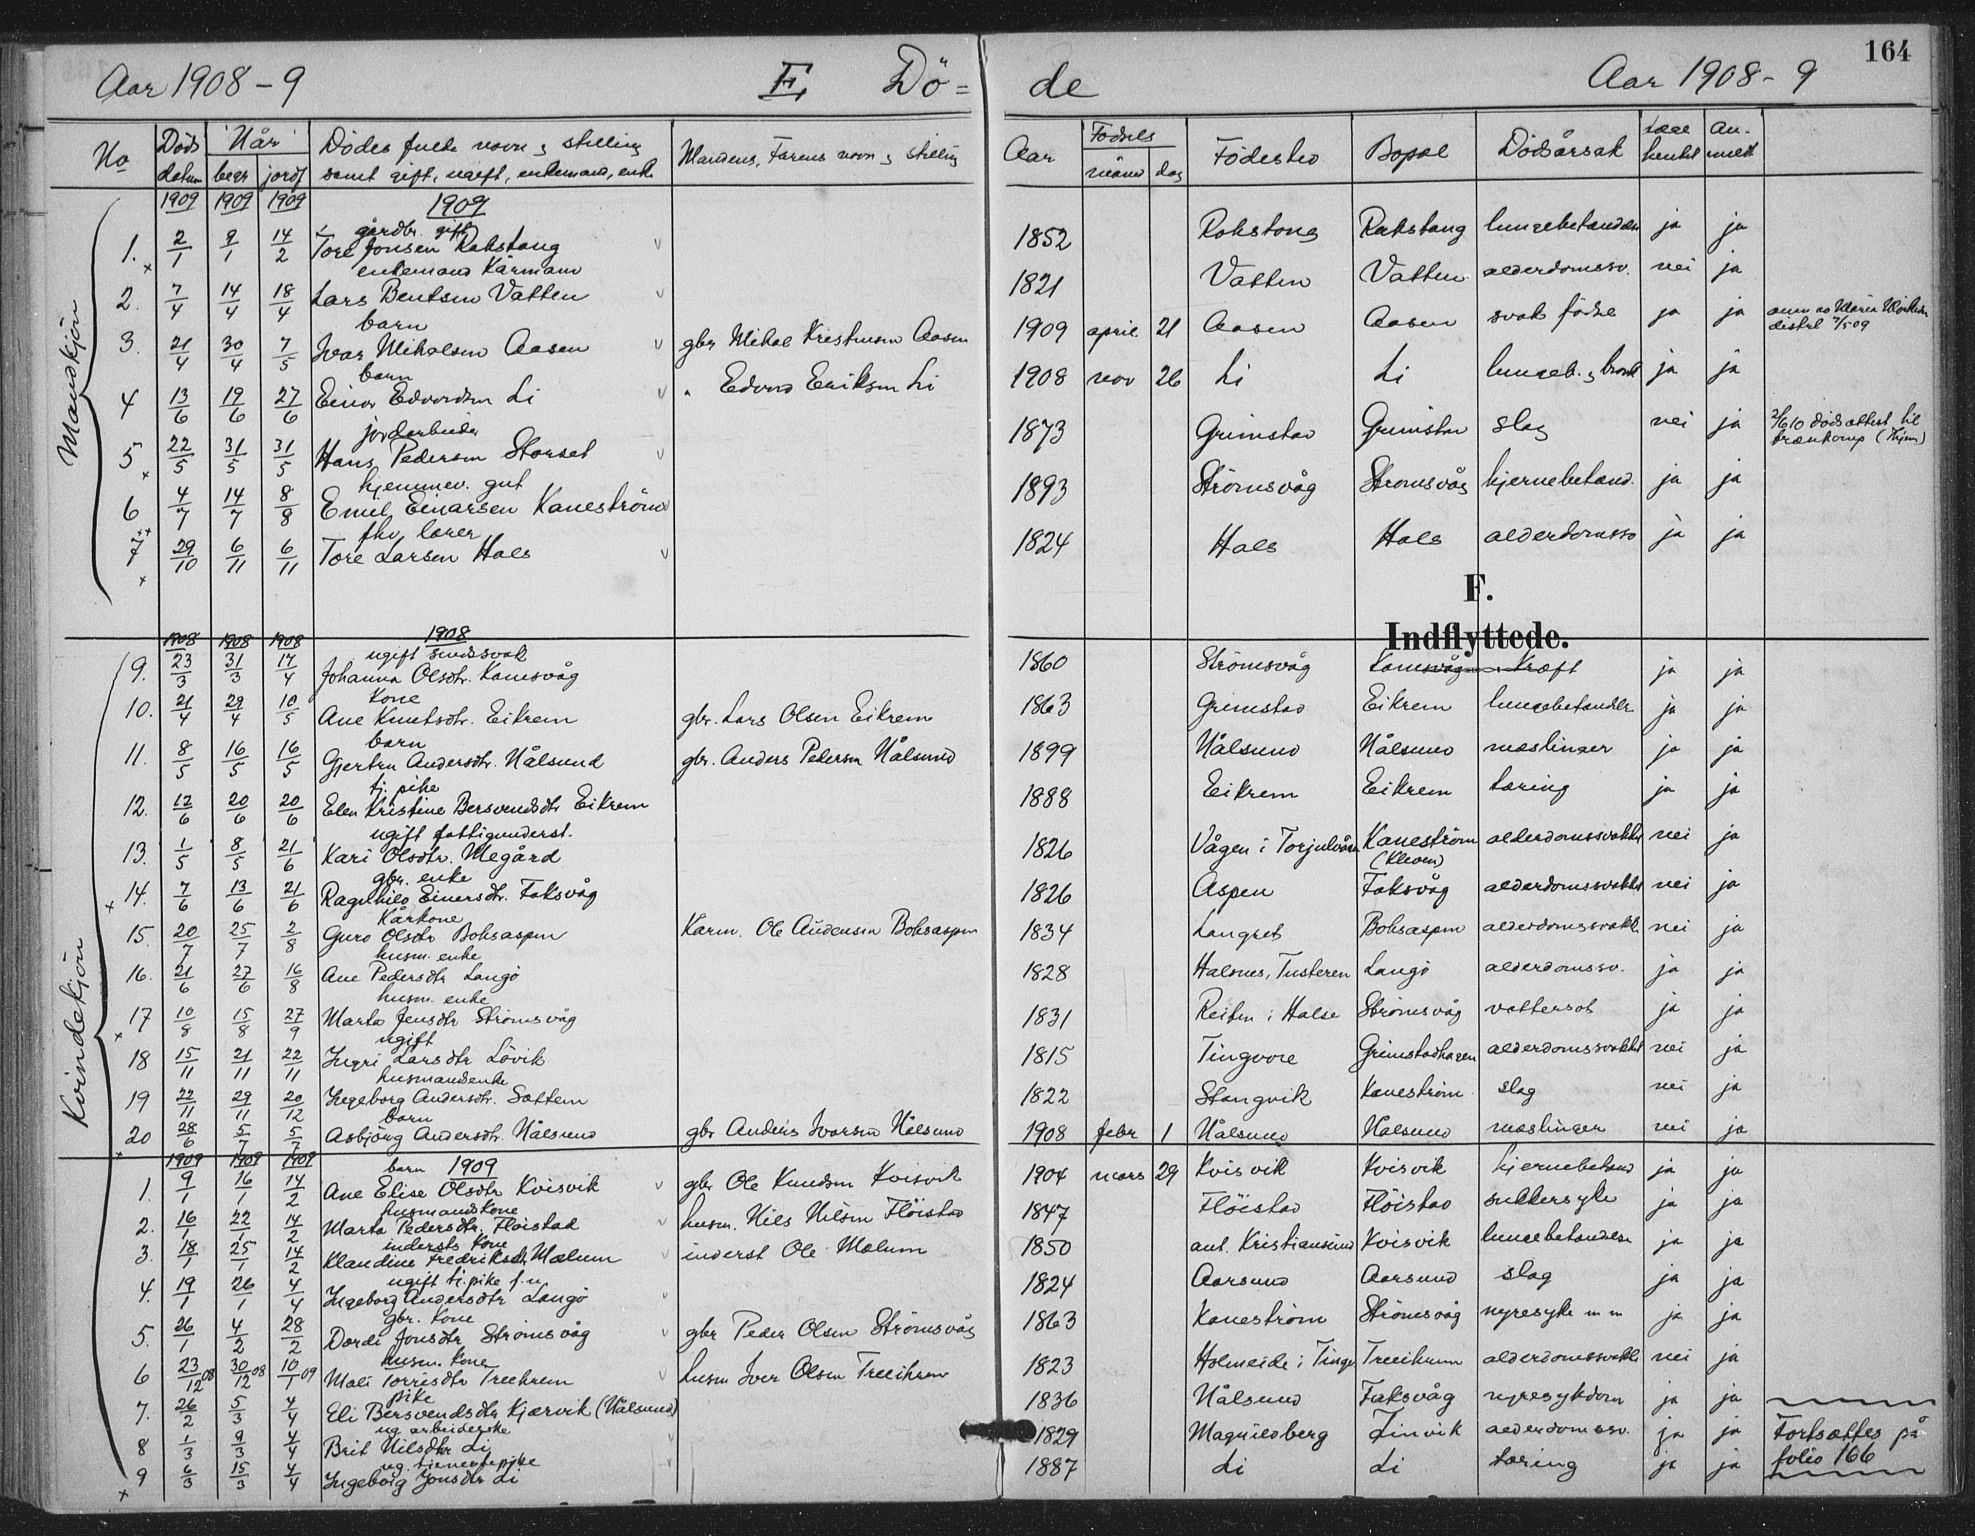 164
Aar 1908-9 E. Dö= de Aar 1908-9
No Døds datum Når begr jordf Dødes fulde navn og stilling samt gift, ugift, enkemand, enke Mandens, Farens navn og stilling Aar Fødsels måned dag Fødested Bopæl Dödsårsak Læge hentet An- meldt
Mandkjön
1909 1909 1909 1909
gårdbr. gift
1. 2/1 9/1 14/2 Tore Jonsen Rakstang 1852 Rakstang Rakstang lungebetændelse ja ja
enkemand Kårmann
2. 7/4 14/4 18/4 Lars Bentsen Vatten 1821 Vatten Vatten alderdomssv. nei ja
barn
3. 21/4 30/4 7/5 Ivar Mikalsen Aasen gbr Mikal Kristensen Aasen 1909 april 21 Aasen Aasen svak födse ja ja
barn
4 13/6 19/6 27/6 Einar Edvardsen Li " Edvard Eriksen Li 1908 nov 26 Li Li lungeb. og bronk ja ja
jordarbeider
5 22/5 31/5 31/5 Hans Pedersen Storset 1873 Grimstad Grimstad slag nei ja
hjemmev. gut
6 4/7 14/7 8/8 Emil Einarsen Kaneström 1893 Strömsvåg Strömsvåg hjernebetænd. ja ja
fhv lærer
7 29/10 6/11 6/11 Tore Larsen Hals 1824 Hals Hals alderdomssv ja ja
F.
Indflyttede.
Kvindekjön
1908 1908 1908 1908
ugift sindssvak
9. 23/3 31/3 17/4 Johanna Olsdtr. Kanesvåg 1860 Strömsvåg Kanesvåg Kræft ja ja
Kone
10. 21/4 29/4 10/5 Ane Knutsdtr. Eikrem gbr. Lars Olsen Eikrem 1863 Grimstad Eikrem lungebetændelse ja ja
barn
11. 8/5 16/5 16/5 Gjertru Andersdtr. Nålsund gbr. Anders Pedersen Nålsund 1899 Nålsund Nålsund mæslinger ja ja
tj. pike
12. 12/6 20/6 20/6 Elen Kristine Bersvendsdtr Eikrem 1888 Eikrem Eikrem tæring ja ja
ugift fattigunderst.
13. 1/5 8/5 21/6 Kari Olsdtr. Megård 1826 Vågen i Torjulvågen Kaneström (Kleven) alderdomssvakhet nei ja
gbr. enke
14. 7/6 13/6 21/6 Ragnhild Einersdtr. Faksvåg 1826 Aspen Faksvåg alderdomssvakhet nei ja
Kårkone
15. 20/7 25/7 2/8 Guro Olsdtr Boksaspen Karm. Ole Audensen Boksaspen 1834 Langset Boksaspen alderdomssvakh. nei ja
husm. enke
16. 21/6 27/6 16/8 Ane Pedersdtr Langö 1828 Halsnes, Tusteren Langö alderdomssv. ja ja
husm. enke
17 10/8 15/8 27/9 Marta Jensdtr Strömsvåg 1831 Reiten i Halse Strömsvåg vattersot ja ja
ugift
18 15/11 21/11 22/11 Ingri Larsdtr Lövik 1815 Tingvoll Grimstadhagen alderdomssvakhet nei ja
husmandsenke
19 22/11 29/11 20/12 Ingeborg Andersdtr. Sættem 1822 Stangvik Kaneström slag nei ja
barn
20 28/6 5/7 5/7 Asbjörg Andersdtr. Nålsund gbr Anders Ivarsen Nålsund 1908 febr 1 Nålsund Nålsund mæslinger nei ja
1909 1909 1909 barn 1909
1. 9/1 16/1 14/2 Ane Elise Olsdtr Kvisvik gbr Ole Knudsen Kvisvik 1904 mars 29 Kvisvik Kvisvik hjernebetænd ja ja
husmandskone
2. 16/1 22/1 14/2 Marta Pedersdtr. Flöistad husm. Nils Nilsen Flöistad 1847 Flöistad Flöistad sukkersyke ja ja
inderst kone
3. 18/1 25/1 14/2 Klaudine Fredriksdtr Mælum inderst Ole Mælum 1850 ant. Kristiansund Kvisvik lungebetændelse ja ja
ugift tj. pike f. u
4. 19/1 26/1 4/4 Ingeborg Andersdtr Langö 1824 Aarsund Aarsund slag ja ja
gbr. Kone
5. 26/1 4/2 28/2 Dordi Jonsdtr Strömsvåg gbr Peder Olsen Strömsvåg 1863 Kaneström Strömsvåg nyresyke m m ja ja
husm. Kone
6 23/12 08 30/12 08 10/1 09 Mali Torrisdtr Treekrem husm Iver Olsen Treeikrem 1823 Holmeide i Tingv Treeikrem alderdomssvakh nei ja
pike
7. 26/2 5/3 4/4 Eli Bersvendsdtr Kjærvik (Nålsund) 1836 Nålsund Faksvåg nyresykdom ja ja
ug. arbeiderske
8 1/3 9/3 4/4 Brit Nilsdtr Li 1829 Magnildberg Finvik alderdomssv. ja ja Fortsættes på
ug. tjenestepike
9 6/3 15/3 4/4 Ingeborg Jonsdtr Li 1887 Li Li tæring ja ja folio 166